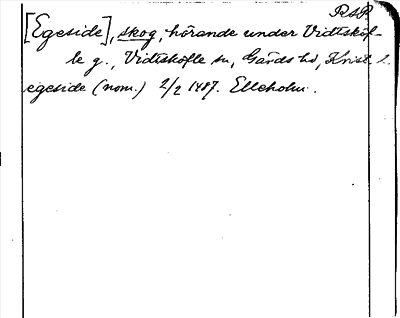 P.S.R.
[Egeside], skog, hörande under Vidtsköf-
le g., Vidtsköfle sn, Gärds hd, Krist. l.
egeside (nom.) 2/2 1487. Elleholm.